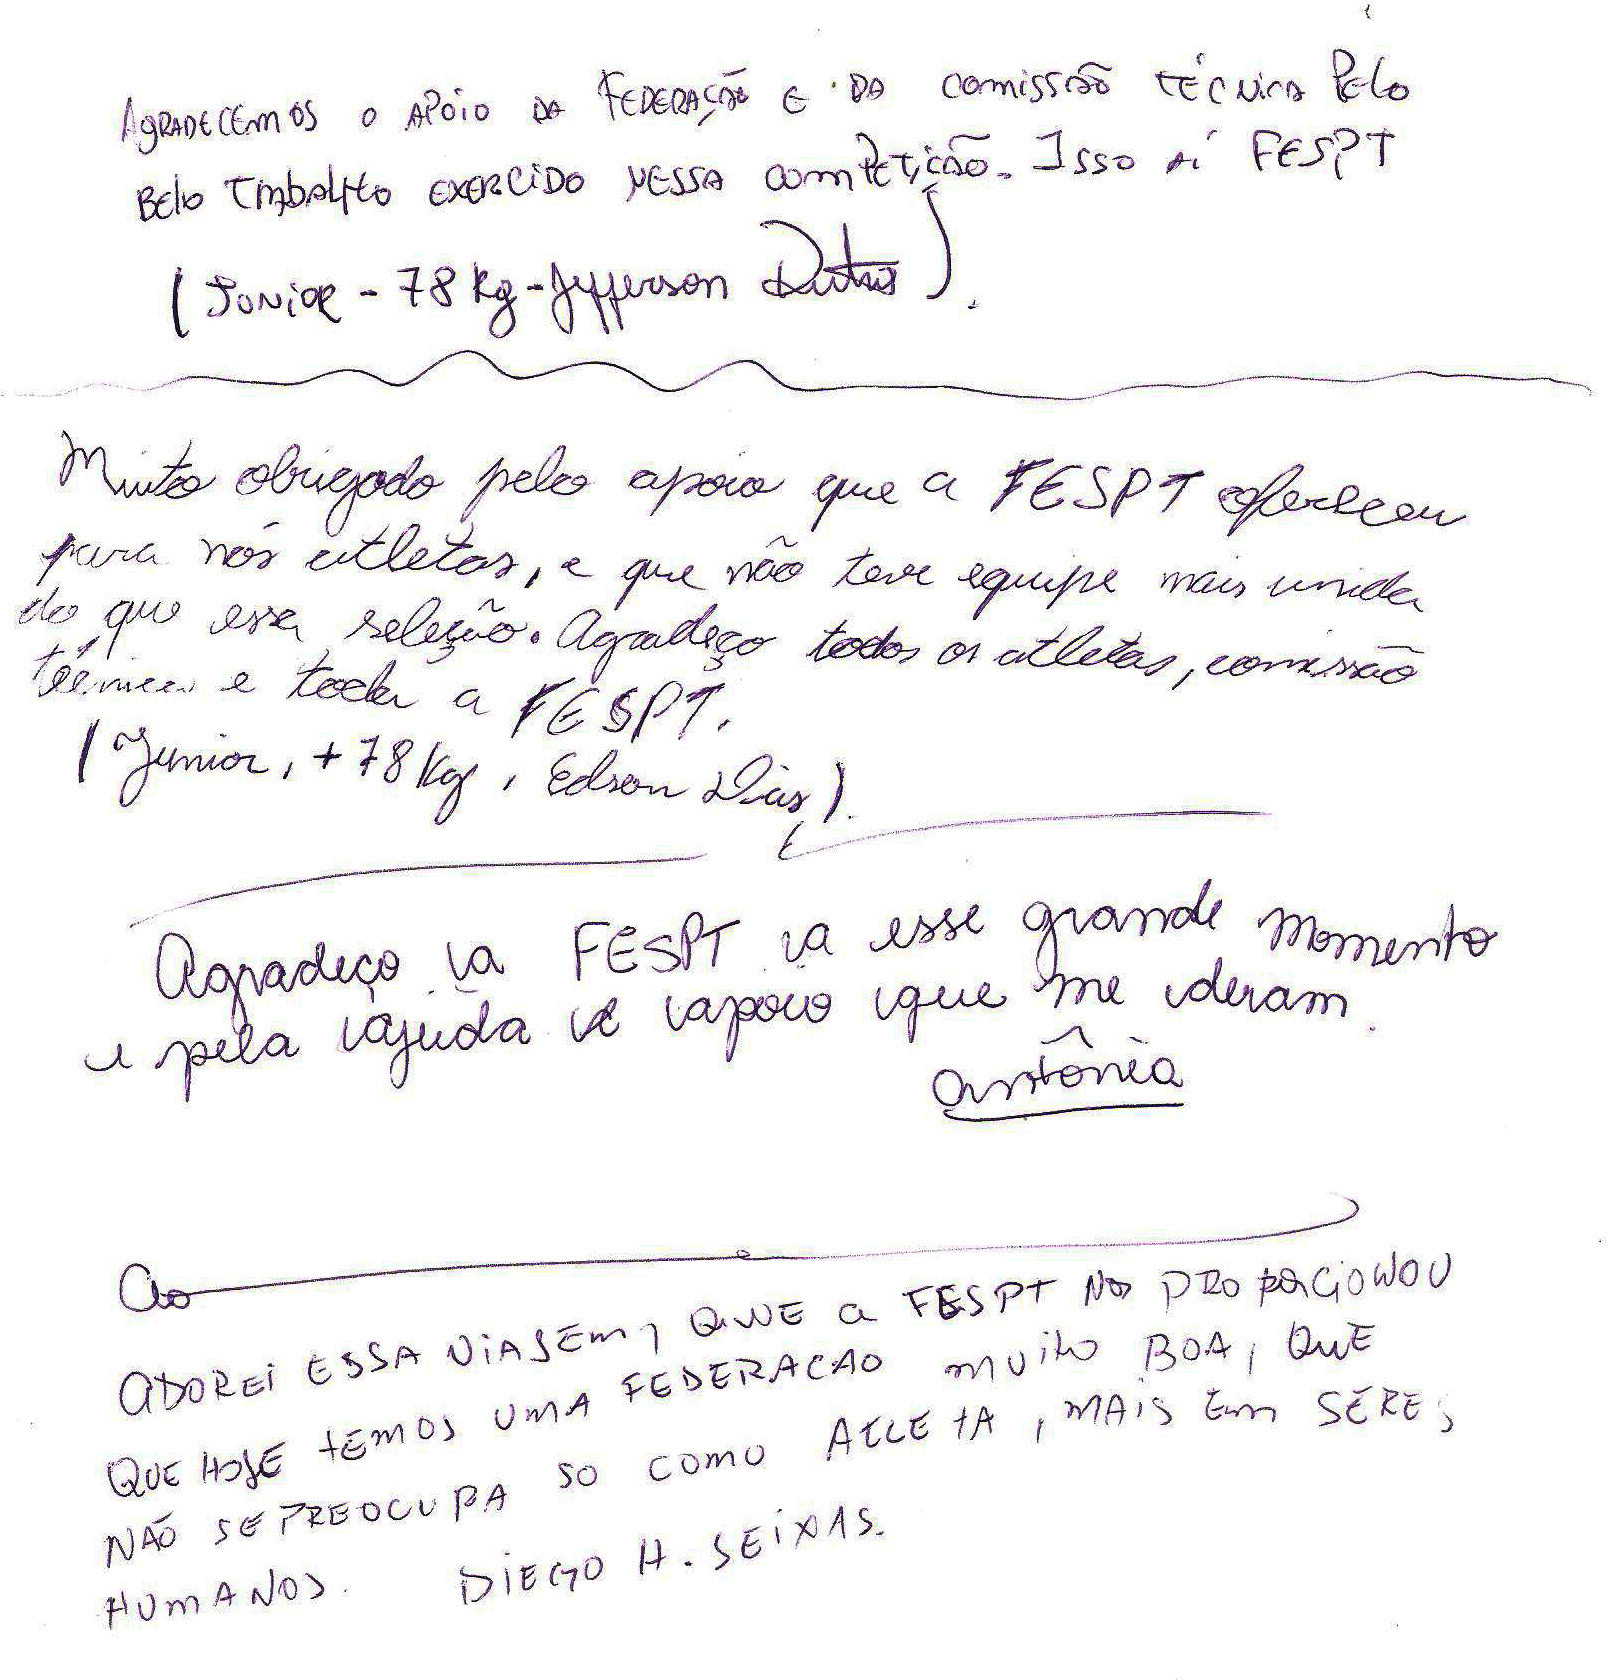 AGRADECEMOS O APOIO DA FEDERAÇÃO E DA COMISSÃO TÉCNICA PELO
BELO TRABALHO EXERCIDO NESSA COMPETIÇÃO. ISSO AÍ FESPT
(JUNIOR - 78 Kg - Jefferson Dutra).
Muito obrigado pelo apoio que a FESPT ofereceu
para nós atletas, e que não teve equipe mais unida
do que essa seleção. Agradeço todos os atletas, comissão
técnica e toda a FESPT.
(Junior, +78 Kg, Edson Dias).
Agradeço a FESPT a esse grande momento
e pela ajuda e apoio que me deram.
Antônia
Ao
ADOREI ESSA VIAGEM, QUE a FESPT NOS PROPORCIONOU
QUE HOJE TEMOS UMA FEDERACAO MUITO BOA, QUE
NÃO SE PREOCUPA SO COMO ATLETA, MAIS EM SERES
HUMANOS. DIEGO H. SEIXAS.